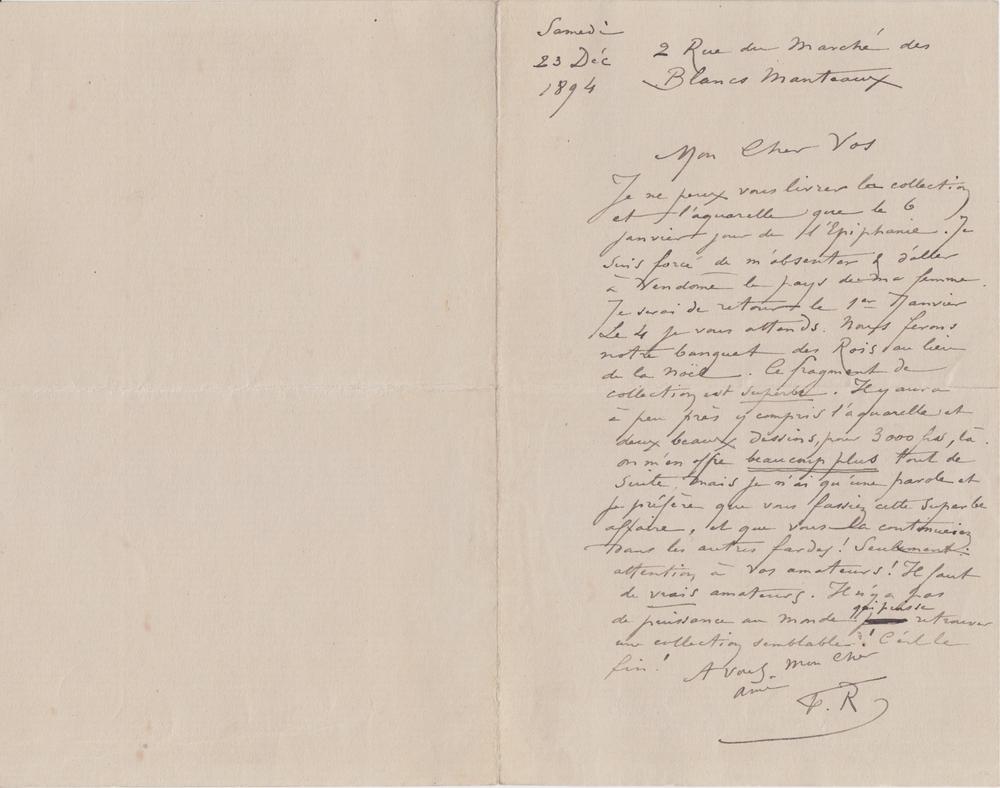 Samedi
23 Déc
1894
2 Rue du Marché des
Blancs Manteaux
Mon Cher Vos
Je ne peux vous livrer la collection
et l'aquarelle que le 6
janvier jour de l'Epiphanie. Je
suis forcé de m'absenter & d'aller
à Vendome le pays de ma femme.
Je serai de retour le 1er Janvier
Le 4 je vous attends. Nous ferons
notre banquet des Rois au lieu
de la Noël. Ce fragment de
collection est superbe. Il y aura
à peu près y compris l'aquarelle et
deux beaux dessins, pour 3000 frs, là.
on m'en offre beaucoup plus tout de
suite, mais je n'ai qu'une parole et
je préfère que vous fassiez cette superbe
affaire, et que vous la continuiez
dans les autres fardes! Seulement:
attention à vos amateurs! Il faut
de vrais amateurs. Il n'y a pas
de puissance au monde qui puisse retrouver
une collection semblable! C'est le
fin!
A vous, mon cher
ami
F. R